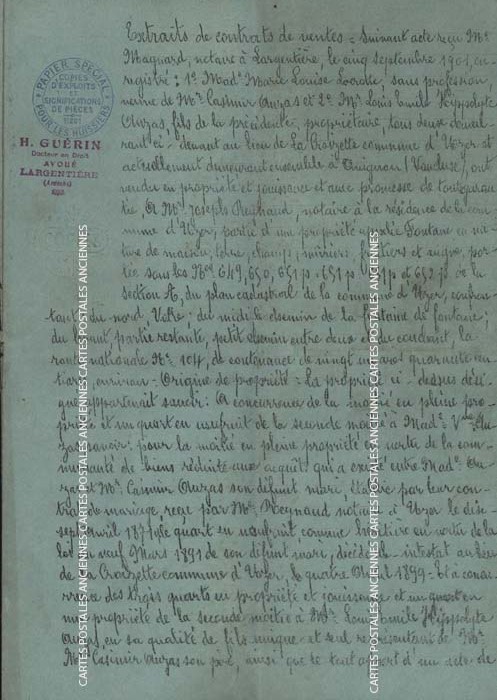 Extraits de contrats de ventes = Suivant acte reçu Me
Maquard, notaire à Largentière, le cinq septembre 1901, en-
registré : 1º Made Marie Louise sans profession
veuve de Mr Casimir Auzas et 2º Mr Louis Emile Hippolyte
Auzas, fils de la précédente, propriétaire, tous deux
ci-devant au lieu de La Crouzette commune d'Uzer et
actuellement demeurant ensemble à Avignon (Vaucluse), ont
vendu en propriété et jouissance et avec promesse de toute garan-
tie, A Mr Joseph notaire à la résidence de la com-
mune d'Uzer, partie d'une propriété appelée Fontane en na-
ture de maison, terre, champ, mûriers, fruitiers et vigne, por-
tée sous les Nos 649, 650, 651 p. et 652 p. de la
section A, du plan cadastral de la commune d'Uzer, confron-
tant du nord, ; du midi le chemin de la fontaine de fontane;
du partie restante, petit chemin entre deux et du couchant, la
route nationale Nº 104, de contenance de vingt ares quarante cen-
tiares environ = Origine de propriété = La propriété ci-dessus dési-
gnée appartenait savoir: A concurrence de la moitié en pleine pro-
priété et un quart en usufruit de la seconde moitié à Made Vve Au-
zas savoir: pour la moitié en pleine propriété en vertu de la com-
munauté de biens réduite aux acquêts qui a existé entre Made Au-
zas et Mr Casimir Auzas son défunt mari, d'après leur con-
trat de mariage reçu par Me Reynaud notaire à Uzer le dix-
sept avril 187 le quart en usufruit comme héritière en vertu de la
loi du neuf Mars 1891 de son défunt mari, décédé intestat au lieu
de La Crouzette commune d'Uzer, le quatre 1899 = Et à concur-
rence des trois quarts en propriété et jouissance et un quart en
nue propriété de la seconde moitié à Mr Louis Emile Hippolyte
Auzas en sa qualité de fils unique et seul représentant de Mr
Casimir Auzas son père, ainsi que le tout appert d'un acte de
PAPIER SPÉCIAL
COPIES
D'EXPLOITS
ET
SIGNIFICATIONS
DE PIÈCES
POUR LES HUISSIERS
H. GUÉRIN
Docteur en Droit
AVOUÉ
LARGENTIÈRE
(Ardèche)
CARTES POSTALES ANCIENNES CARTES POSTALES ANCIENNES CARTES POSTALES ANCIENNES
CARTES POSTALES ANCIENNES CARTES POSTALES ANCIENNES CARTES POSTALES ANCIENNES